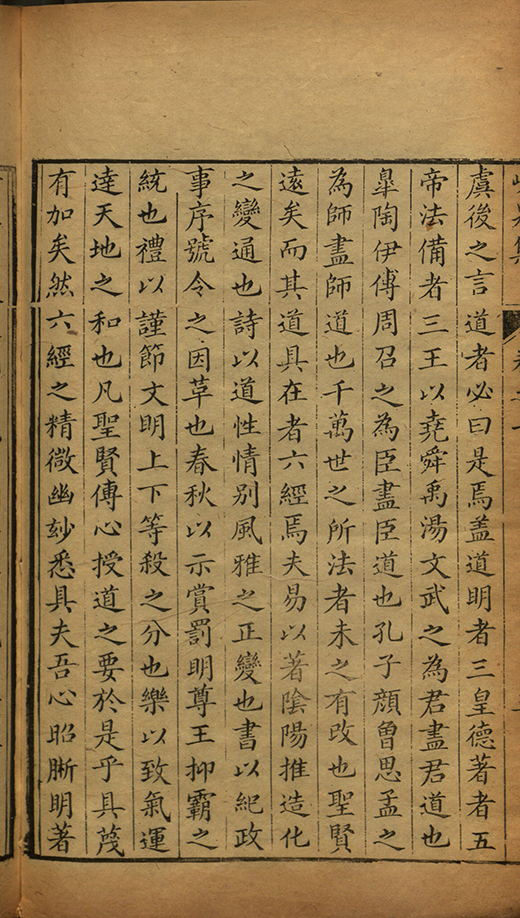 虞後之言道者必曰是焉盖道明者三皇德著者五
帝法備者三王以堯舜禹湯文武之為君盡君道也
臯陶伊傅周召之為臣盡臣道也孔子顔曽思孟之
為師盡師道也千萬世之所法者未之有改也聖賢
逺矣而其道具在者六經焉夫易以著隂陽推造化
之變通也詩以道性情别風雅之正變也書以紀政
事序號令之因革也春秋以示賞罰明尊王抑霸之
統也禮以謹節文明上下等殺之分也樂以致氣運
逹天地之和也凡聖賢傳心授道之要於是乎具蔑
有加矣然六經之精微幽玅悉具夫吾心昭晣明著